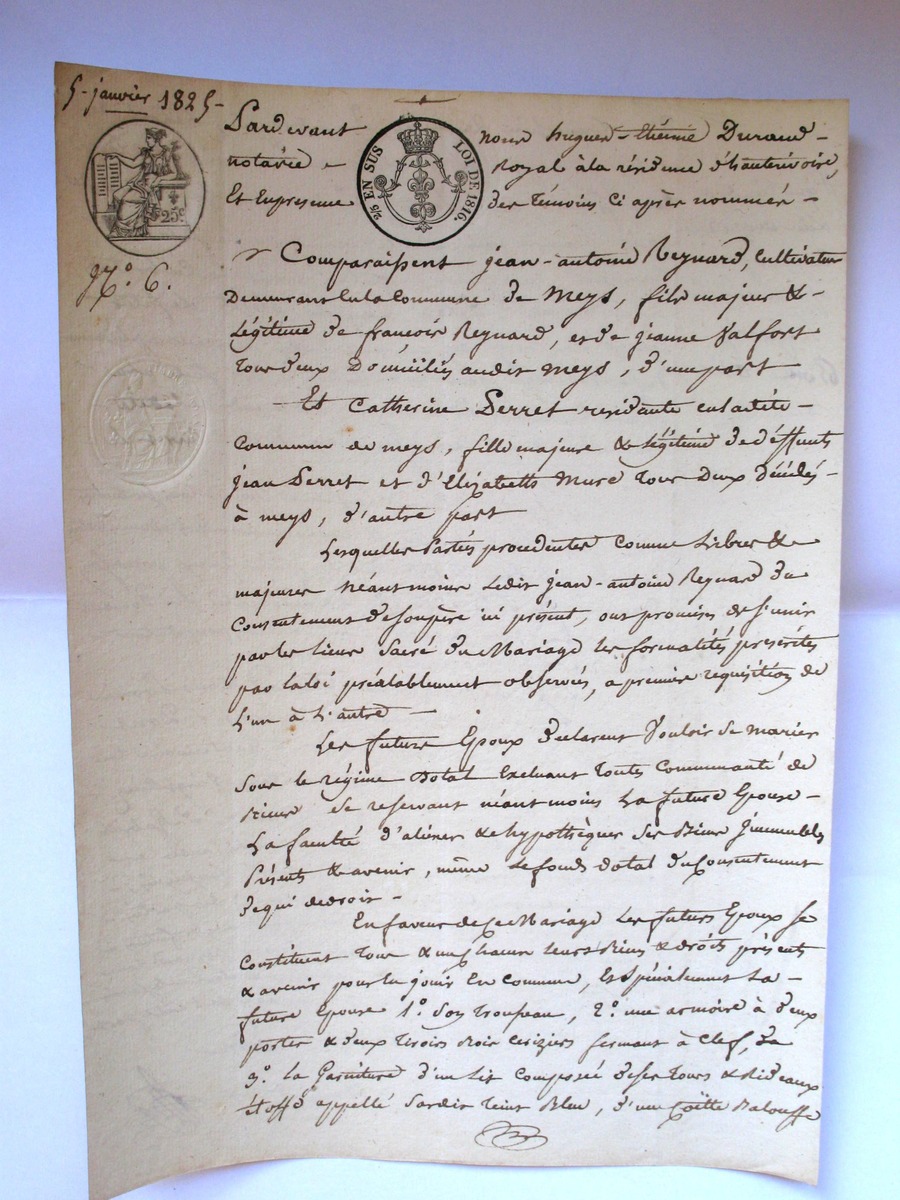 5 janvier 1825
Pardevant nous hugues-Etienne Durand
notaire Royal à la résidence d'hauterivoire,
Et En presence des Témoins Ci après nommés
2/5 EN SUS LOI DE 1816.
25c
N.° 6.
Comparaissent jean-antoine Reynard, Cultivateur
Demeurant En la Commune de Meys, fils majeur &
Légitime de françois Reynard, et de jeanne Valfort
Tous deux Domiciliés audit meys, d'une part
Et Catherine Perret residante en ladite
Commune de meys, fille majeure & légitime de deffunts
jean Perret et d'Elizabeth Mure Tous Deux Décédés
à meys, d'autre part
Lesquelles Parties procedentes Comme Libres &
majeures Néantmoins Ledit jean-antoine Reynard du
Consentement de son père ici présent, ont promises de s'unir
par les liens Sacré du Mariage les formalités préscrites
par la loi préalablement observées, a première requisition de
L'un à L'autre
Les future Epoux Déclarent Vouloir se marier
Sous le régime Dotal Excluant Toutes Communauté de
Biens se reservant néantmoins La future Epouse
La faculté d'aliéner & hypothèquer Ses Biens Immeubles
Présents & avenir, même Le fonds dotal du Consentement
de qui de droit
En faveur de Ce Mariage Les futurs Epoux Se
Constituent Tous & un chacun leurs Biens & droits présents
& avenir pour En jouir En Commun, Et Spécialement La
future Epouse 1.° Son Troupeau, 2.° une armoire à deux
portes & deux Tiroirs Bois Cerizier fermant à Clef,
3.° la Garniture d'un lit Composée de ses Tours & Rideaux
étoffe appellé Sardis Teint Bleu, d'une Coëtte Balouffe